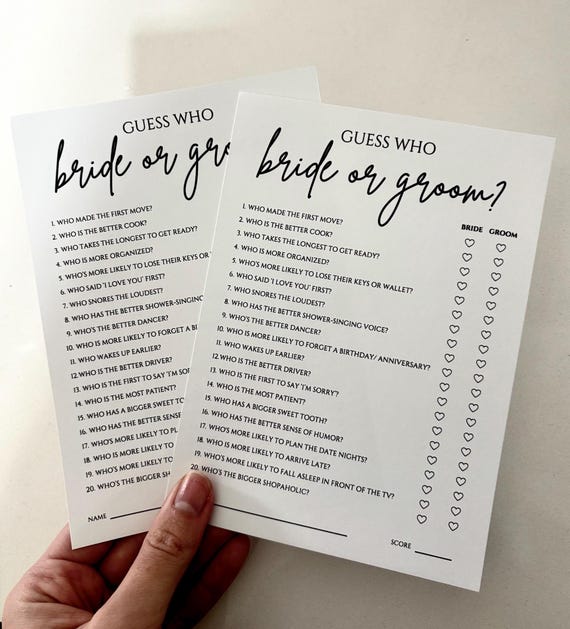 GUESS WHO
bride or
1. WHO MADE THE FIRST MOVE?
2. WHO IS THE BETTER COOK?
3. WHO TAKES THE LONGEST TO GET READY?
4. WHO IS MORE ORGANIZED?
5. WHO'S MORE LIKELY TO LOSE THEIR KEYS OR
6. WHO SAID 'I LOVE YOU' FIRST?
7. WHO SNORES THE LOUDEST?
8. WHO HAS THE BETTER SHOWER-SINGING
9. WHO'S THE BETTER DANCER?
10. WHO IS MORE LIKELY TO FORGET A
11. WHO WAKES UP EARLIER?
12.WHO IS THE BETTER DRIVER?
13. WHO IS THE FIRST TO SAY 'I'M
14. WHO IS THE MOST PATIENT?
15. WHO HAS A BIGGER SWEET
16. WHO HAS THE BETTER SENSE
17. WHO'S MORE LIKELY TO
18. WHO IS MORE LIKELY TO
19. WHO'S MORE LIKELY TO
20. WHO'S THE BIGGER
NAME
GUESS WHO
bride or groom?
BRIDE GROOM
1. WHO MADE THE FIRST MOVE?
2. WHO IS THE BETTER COOK?
3. WHO TAKES THE LONGEST TO GET READY?
4. WHO IS MORE ORGANIZED?
5. WHO'S MORE LIKELY TO LOSE THEIR KEYS OR WALLET?
6. WHO SAID 'I LOVE YOU' FIRST?
7. WHO SNORES THE LOUDEST?
8. WHO HAS THE BETTER SHOWER-SINGING VOICE?
9. WHO'S THE BETTER DANCER?
10. WHO IS MORE LIKELY TO FORGET A BIRTHDAY/ ANNIVERSARY?
11. WHO WAKES UP EARLIER?
12.WHO IS THE BETTER DRIVER?
13. WHO IS THE FIRST TO SAY 'I'M SORRY?
14. WHO IS THE MOST PATIENT?
15. WHO HAS A BIGGER SWEET TOOTH?
16. WHO HAS THE BETTER SENSE OF HUMOR?
17. WHO'S MORE LIKELY TO PLAN THE DATE NIGHTS?
18. WHO IS MORE LIKELY TO ARRIVE LATE?
19. WHO'S MORE LIKELY TO FALL ASLEEP IN FRONT OF THE TV?
20. WHO'S THE BIGGER SHOPAHOLIC?
SCORE